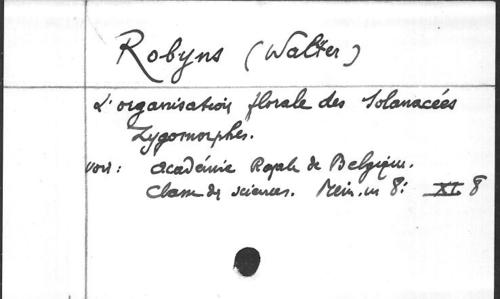 Robyns (Walter)
L'organisation florale des Solanacées
Zygomorphes.
voir: Académie Royale de Belgique.
Classe des sciences. Mém. in 8: XI 8